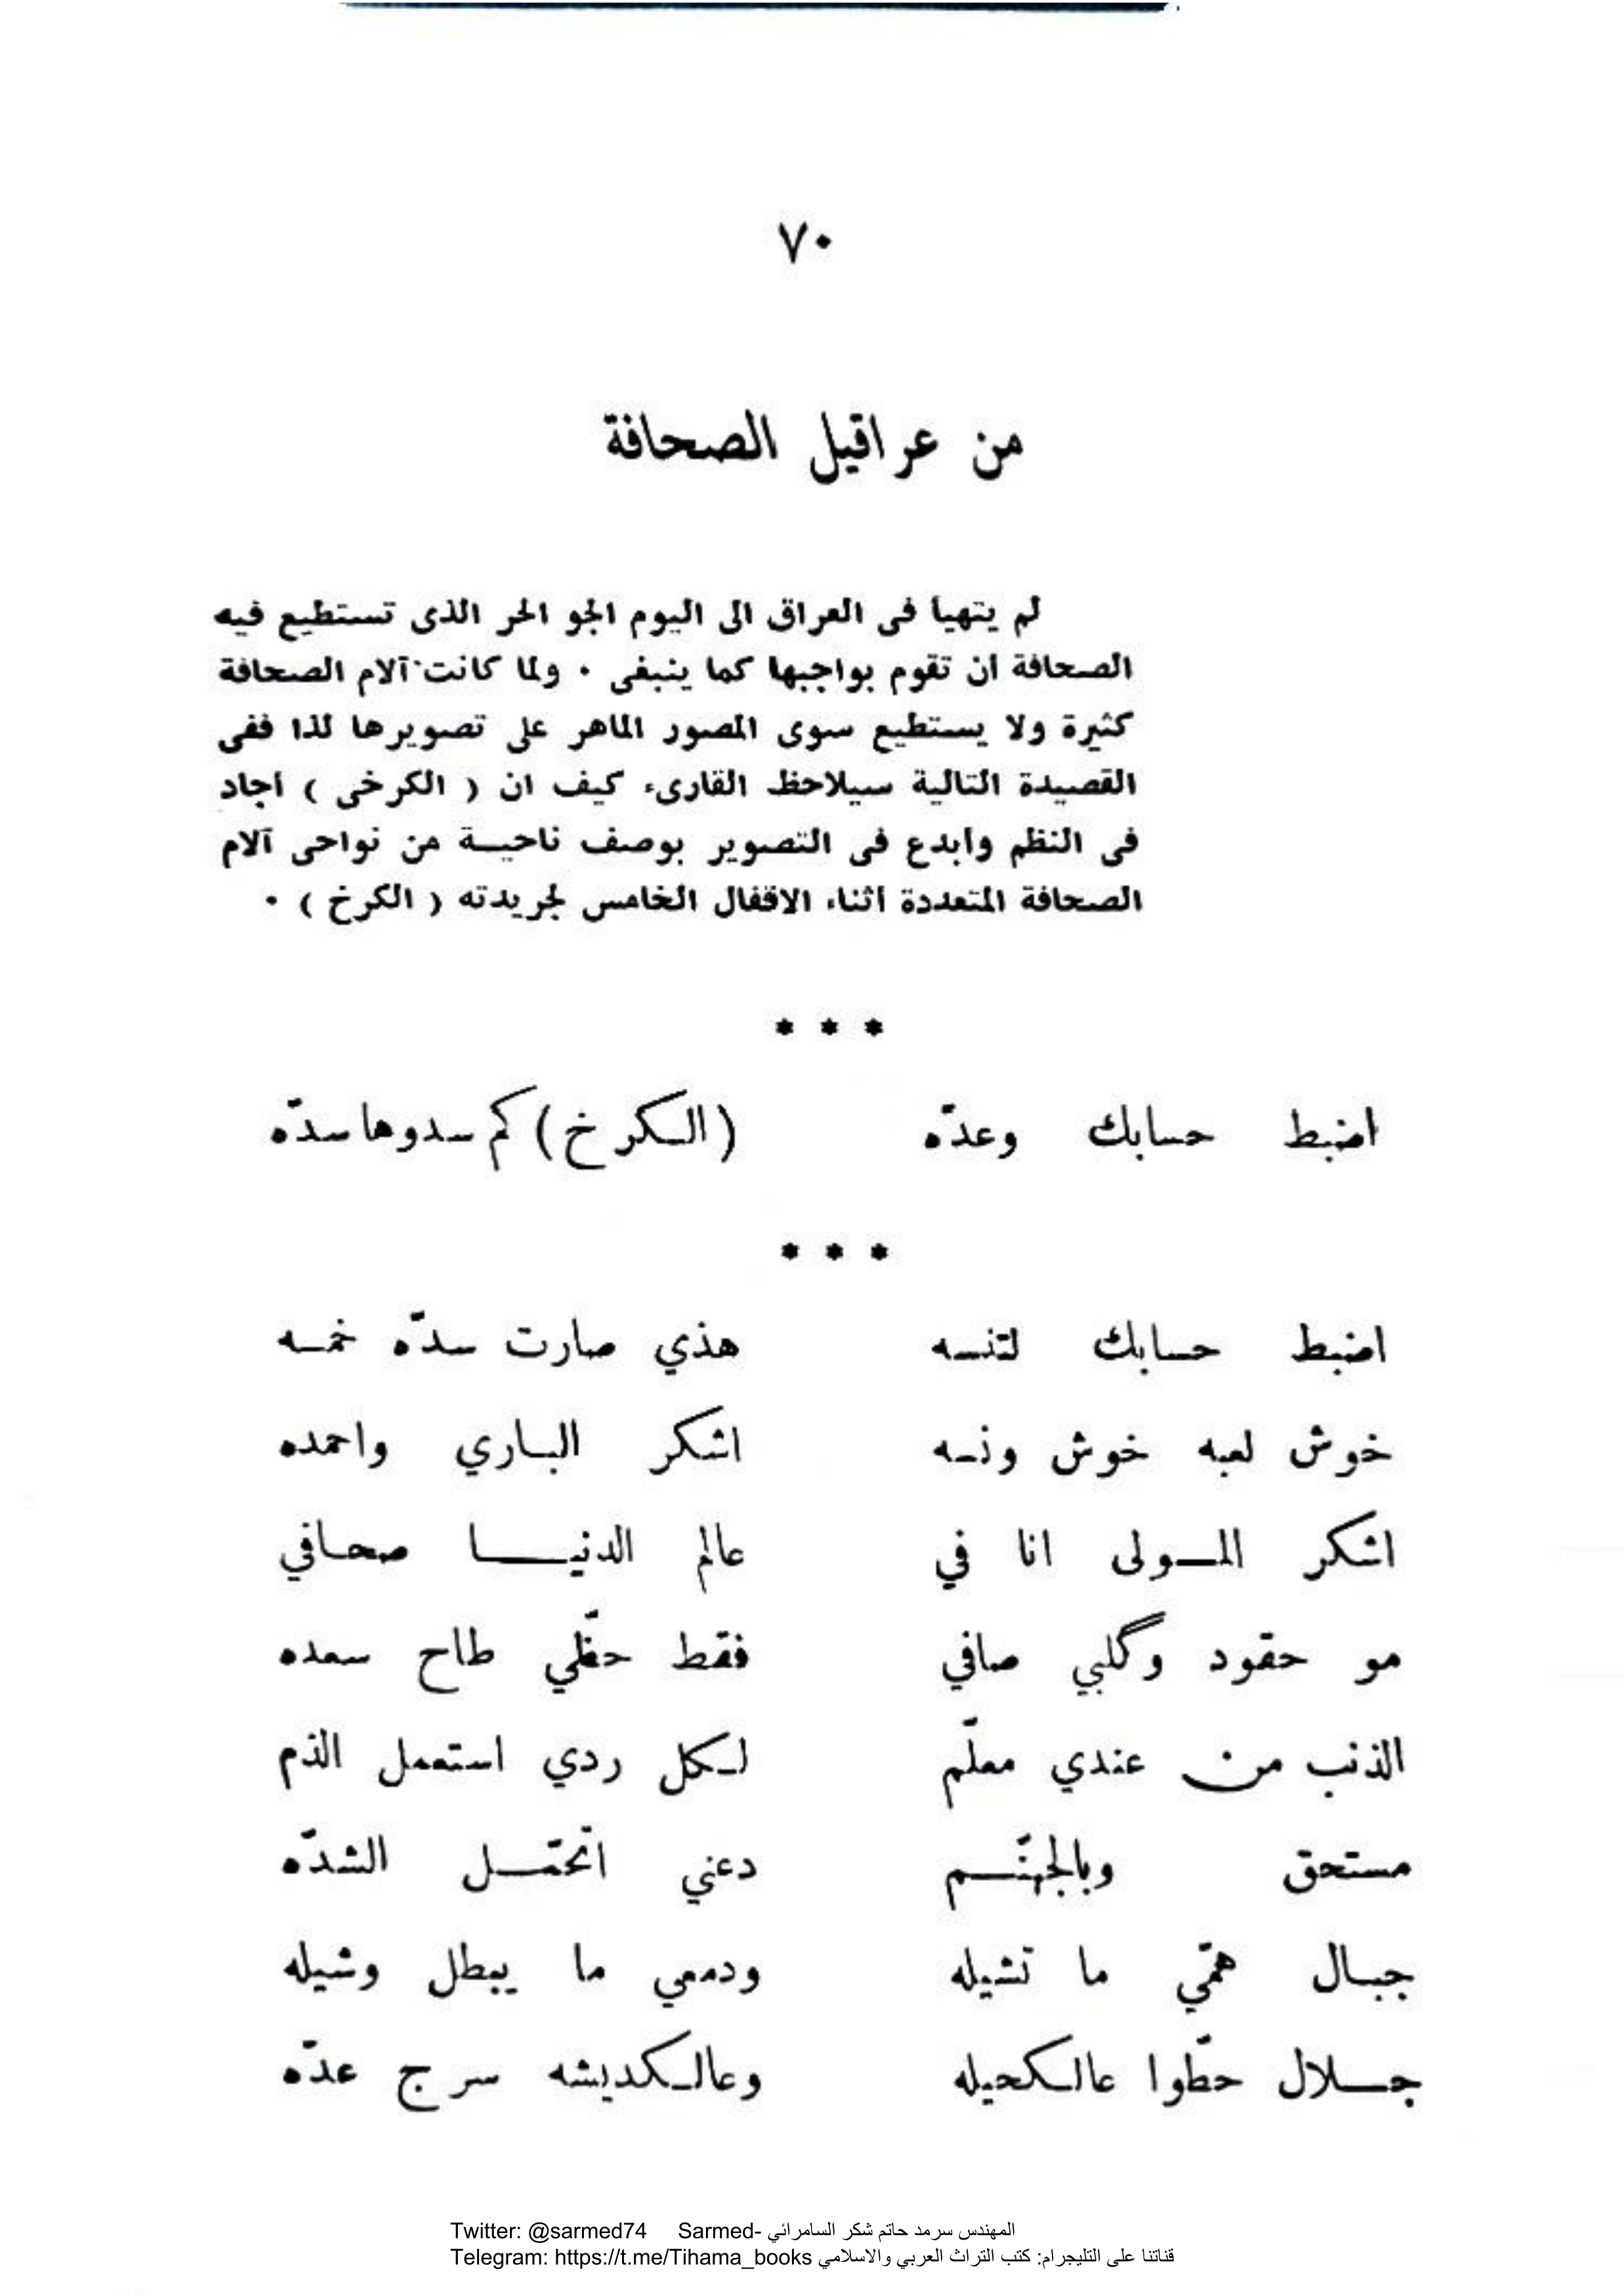 ٧٠
من عراقيل الصحافة
لم يتهيأ فى العراق الى اليوم الجو الحر الذى تستطيع فيه
الصحافة ان تقوم بواجبها كما ينبغى ٠ ولما كانت آلام الصحافة
كثيرة ولا يستطيع سوى المصور الماهر على تصويرها لذا ففى
القصيدة التالية سيلاحظ القارىء كيف ان ( الكرخى ) اجاد
فى النظم وابدع فى التصوير بوصف ناحيـــة من نواحى آلام
الصحافة المتعددة اثناء الاقفال الخامس لجريدته ( الكرخ ) ٠
* * *
اضبط حسابك وعدّه (الـكرخ) كم سدوها سدّه
* * *
اضبط حسابك لتنسـه هذي صارت سدّه خمسـه
خوش لعبه خوش ونسـه اشكر البـاري واحمده
اشكر المـــولى انا في عالم الدنيـــــا صحـافي
مو حقود وگلبي صافي فقط حظّي طاح سعده
الذنب من عندي معلّم لـكل ردي استعمل الذم
مستحق وبالجهنّـــم دعني اتّحمّـــل الشدّه
جبـال همّي ما تشيله ودمعي ما يبطل وشيله
جـــلال حطّوا عالـكحيله وعالـكديشه سرج عدّه
Twitter: @sarmed74 Sarmed- المهندس سرمد حاتم شكر السامرائي
Telegram: https://t.me/Tihama_books قناتنا على التليجرام: كتب التراث العربي والاسلامي